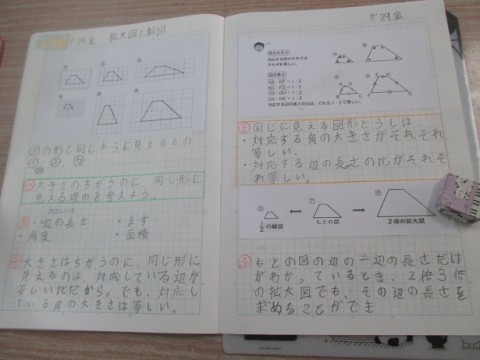 拡大図と縮図
のわ
と同じように見えるもの
大きさはちがうのに、同じ形に
見える理由を考えよう。
・辺の長さ ・ます
・角度 ・面積
大きさはちがうのに、同じ形に
見えるのは、対応している辺が
等しい比だから。でも、対応し
ている角の大きさは等しい。
5.29 金
同じに見える図形どうしは
・対応する角の大きさがそれぞれ
等しい。
・対応する辺の長さの比がそれぞ
れ等しい。
1/2の縮図 もとの図 2倍の拡大図
もとの図の辺の一辺の長さだけ
がわかっているとき、2倍、3倍
の拡大図でも、その辺の長さを
求めることができ